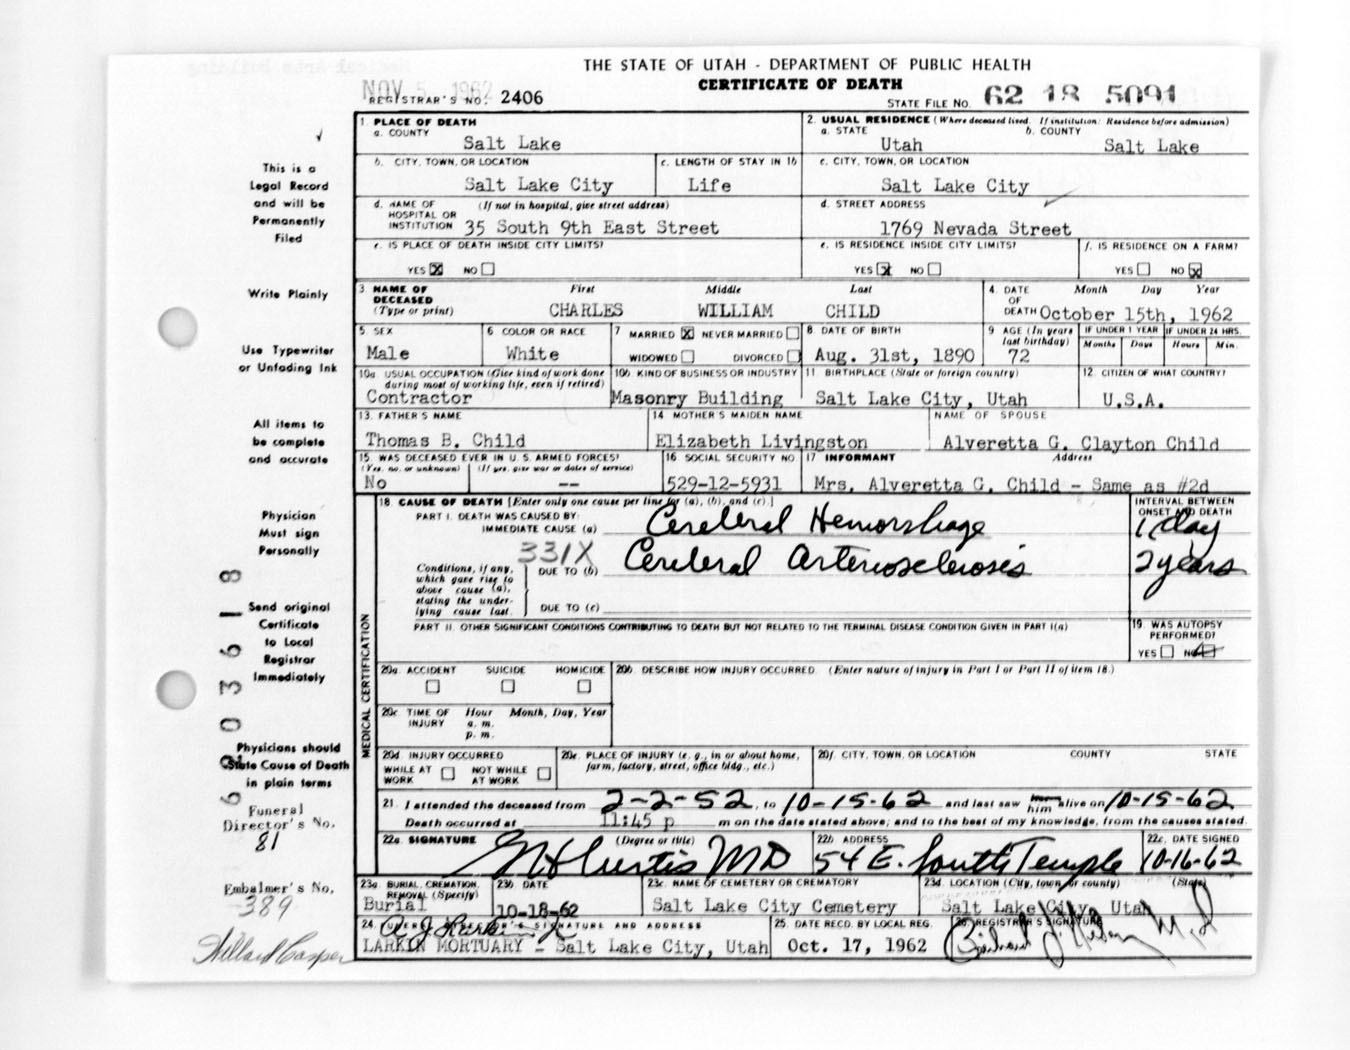 THE STATE OF UTAH - DEPARTMENT OF PUBLIC HEALTH
CERTIFICATE OF DEATH
NOV 5 1962
REGISTRAR'S NO. 2406
STATE FILE NO. 62 18 5091
1. PLACE OF DEATH
a. COUNTY
Salt Lake
2. USUAL RESIDENCE (Where deceased lived. If institution: Residence before admission)
a. STATE
Utah
b. COUNTY
Salt Lake
b. CITY, TOWN, OR LOCATION
Salt Lake City
c. LENGTH OF STAY IN 1b
Life
c. CITY, TOWN, OR LOCATION
Salt Lake City
d. NAME OF HOSPITAL OR INSTITUTION (If not in hospital, give street address)
35 South 9th East Street
d. STREET ADDRESS
1769 Nevada Street
e. IS PLACE OF DEATH INSIDE CITY LIMITS?
YES X NO
e. IS RESIDENCE INSIDE CITY LIMITS?
YES X NO
f. IS RESIDENCE ON A FARM?
YES NO X
3. NAME OF DECEASED (Type or print)
First Middle Last
CHARLES WILLIAM CHILD
4. DATE OF DEATH
Month Day Year
October 15th, 1962
5. SEX
Male
6. COLOR OR RACE
White
7. MARRIED X NEVER MARRIED
WIDOWED DIVORCED
8. DATE OF BIRTH
Aug. 31st, 1890
9. AGE (In years last birthday)
72
IF UNDER 1 YEAR
Months Days
IF UNDER 24 HRS.
Hours Min.
10a. USUAL OCCUPATION (Give kind of work done during most of working life, even if retired)
Contractor
10b. KIND OF BUSINESS OR INDUSTRY
Masonry Building
11. BIRTHPLACE (State or foreign country)
Salt Lake City, Utah
12. CITIZEN OF WHAT COUNTRY?
U.S.A.
13. FATHER'S NAME
Thomas B. Child
14. MOTHER'S MAIDEN NAME
Elizabeth Livingston
NAME OF SPOUSE
Alveretta G. Clayton Child
15. WAS DECEASED EVER IN U. S. ARMED FORCES?
(Yes, no, or unknown) (If yes, give war or dates of service)
No --
16. SOCIAL SECURITY NO.
529-12-5931
17. INFORMANT Address
Mrs. Alveretta G. Child - Same as #2d
MEDICAL CERTIFICATION
18. CAUSE OF DEATH [Enter only one cause per line for (a), (b), and (c).]
INTERVAL BETWEEN ONSET AND DEATH
PART I. DEATH WAS CAUSED BY:
IMMEDIATE CAUSE (a) Cerebral Hemorrhage 1 day
331X
Conditions, if any, which gave rise to above cause (a), stating the underlying cause last.
DUE TO (b) Cerebral Arteriosclerosis 2 years
DUE TO (c)
PART II. OTHER SIGNIFICANT CONDITIONS CONTRIBUTING TO DEATH BUT NOT RELATED TO THE TERMINAL DISEASE CONDITION GIVEN IN PART I(a)
19. WAS AUTOPSY PERFORMED?
YES NO
20a. ACCIDENT SUICIDE HOMICIDE
20b. DESCRIBE HOW INJURY OCCURRED. (Enter nature of injury in Part I or Part II of item 18.)
20c. TIME OF INJURY Hour Month, Day, Year
a. m.
p. m.
20d. INJURY OCCURRED
WHILE AT WORK NOT WHILE AT WORK
20e. PLACE OF INJURY (e. g., in or about home, farm, factory, street, office bldg., etc.)
20f. CITY, TOWN, OR LOCATION COUNTY STATE
21. I attended the deceased from 2-2-52, to 10-15-62 and last saw him alive on 10-15-62
Death occurred at 11:45 p m on the date stated above; and to the best of my knowledge, from the causes stated.
22a. SIGNATURE (Degree or title)
Curtis MD
22b. ADDRESS
54 E. South Temple
22c. DATE SIGNED
10-16-62
23a. BURIAL, CREMATION, REMOVAL (Specify)
Burial
23b. DATE
10-18-62
23c. NAME OF CEMETERY OR CREMATORY
Salt Lake City Cemetery
23d. LOCATION (City, town, or county) (State)
Salt Lake City, Utah
24. SIGNATURE AND ADDRESS
LARKIN MORTUARY - Salt Lake City, Utah
25. DATE RECD. BY LOCAL REG.
Oct. 17, 1962
26. REGISTRAR'S SIGNATURE
This is a
Legal Record
and will be
Permanently
Filed
Write Plainly
Use Typewriter
or Unfading Ink
All items to
be complete
and accurate
Physician
Must sign
Personally
Send original
Certificate
to Local
Registrar
Immediately
Physicians should
State Cause of Death
in plain terms
Funeral
Director's No.
81
Embalmer's No.
389
Willard Casper